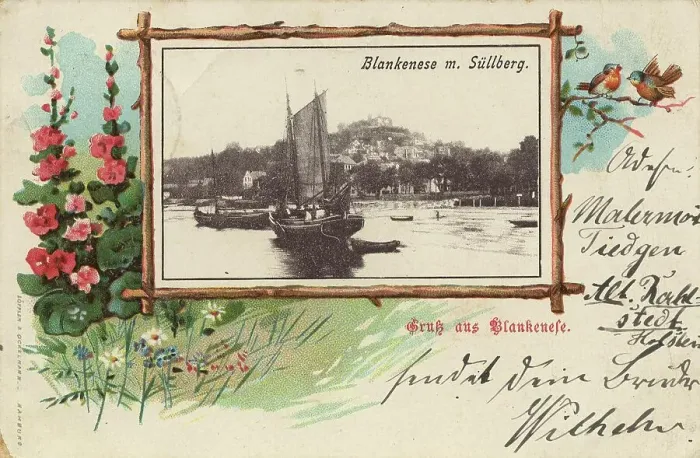 Blankenese m. Süllberg.
Gruß aus Blankenese.
Malermstr
Tiedgen
Alt. Rahl-
stedt
Holstein
sendet dein Bruder
Wilhelm
HAMBURG